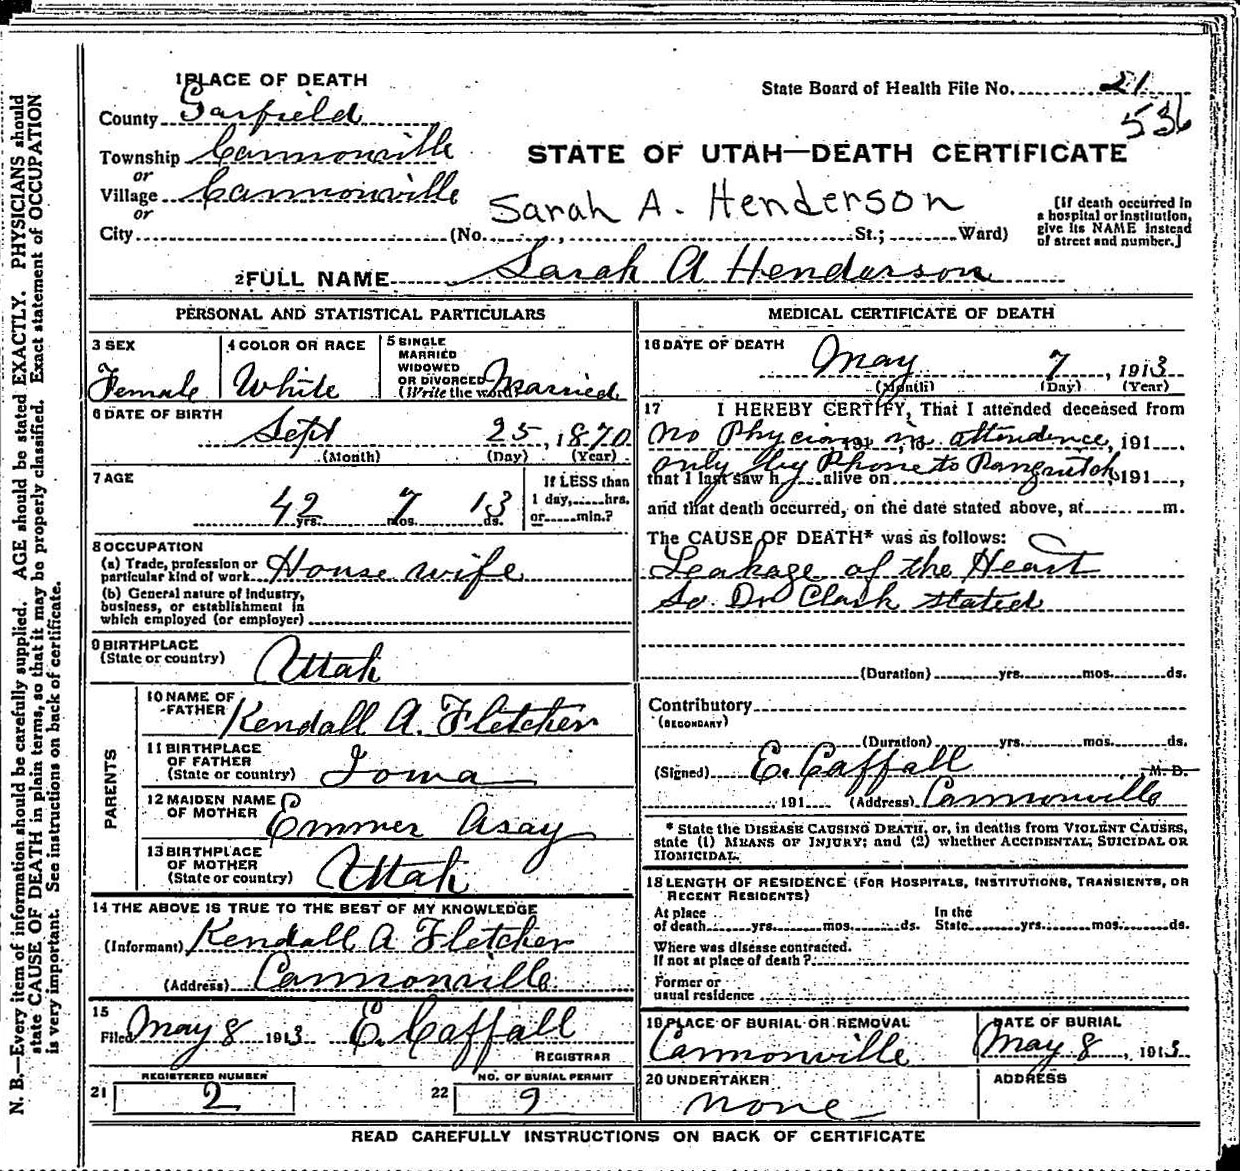 1 PLACE OF DEATH
State Board of Health File No. 21
536
County Garfield
Township Cannonville
or
Village Cannonville
or
City (No. , St.; Ward)
STATE OF UTAH—DEATH CERTIFICATE
Sarah A. Henderson
[If death occurred in
a hospital or institution,
give its NAME instead
of street and number.]
2 FULL NAME Sarah A Henderson
PERSONAL AND STATISTICAL PARTICULARS
3 SEX
Female
4 COLOR OR RACE
White
5 SINGLE
MARRIED
WIDOWED
OR DIVORCED
(Write the word)
Married
6 DATE OF BIRTH
Sept 25, 1870
(Month) (Day) (Year)
7 AGE
42 yrs. 7 mos. 13 ds.
If LESS than
1 day, hrs.
or min.?
8 OCCUPATION
(a) Trade, profession or
particular kind of work House wife
(b) General nature of Industry,
business, or establishment in
which employed (or employer)
9 BIRTHPLACE
(State or country) Uttah
PARENTS
10 NAME OF
FATHER Kendall A. Fletcher
11 BIRTHPLACE
OF FATHER
(State or country) Iowa
12 MAIDEN NAME
OF MOTHER Emmer Asay
13 BIRTHPLACE
OF MOTHER
(State or country) Uttah
14 THE ABOVE IS TRUE TO THE BEST OF MY KNOWLEDGE
(Informant) Kendall A Fletcher
(Address) Cannonville
15
Filed May 8 1913 E. Caffall
REGISTRAR
REGISTERED NUMBER
21 2
NO. OF BURIAL PERMIT
22 9
MEDICAL CERTIFICATE OF DEATH
16 DATE OF DEATH
May 7, 1913
(Month) (Day) (Year)
17 I HEREBY CERTIFY, That I attended deceased from
No Physician in attendence, 191
only by Phone to Panguitch 191
that I last saw h alive on
and that death occurred, on the date stated above, at m.
The CAUSE OF DEATH* was as follows:
Leakage of the Heart
So Dr Clark stated
(Duration) yrs. mos. ds.
Contributory
(SECONDARY)
(Duration) yrs. mos. ds.
(Signed) E. Caffall M. D.
, 191 (Address) Cannonville
* State the DISEASE CAUSING DEATH, or, in deaths from VIOLENT CAUSES,
state (1) MEANS OF INJURY; and (2) whether ACCIDENTAL, SUICIDAL OR
HOMICIDAL.
18 LENGTH OF RESIDENCE (FOR HOSPITALS, INSTITUTIONS, TRANSIENTS, OR
RECENT RESIDENTS)
At place
of death yrs. mos. ds.
In the
State yrs. mos. ds.
Where was disease contracted.
If not at place of death?
Former or
usual residence
19 PLACE OF BURIAL OR REMOVAL
Cannonville
DATE OF BURIAL
May 8, 1913
20 UNDERTAKER
None
ADDRESS
READ CAREFULLY INSTRUCTIONS ON BACK OF CERTIFICATE
N. B.—Every item of information should be carefully supplied. AGE should be stated EXACTLY. PHYSICIANS should
state CAUSE OF DEATH in plain terms, so that it may be properly classified. Exact statement of OCCUPATION
is very important. See instructions on back of certificate.